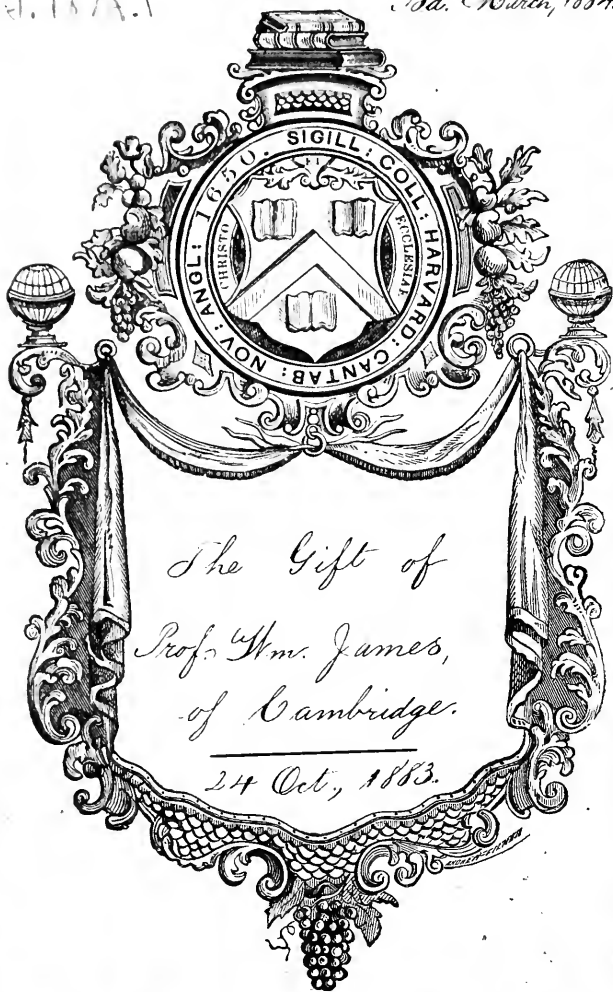 Bd. March, 1884.
SIGILL: COLL: HARVARD: CANTAB: NOV: ANGL: 1650.
CHRISTO
ECCLESIAE
The Gift of
Prof. Wm. James,
of Cambridge.
24 Oct., 1883.